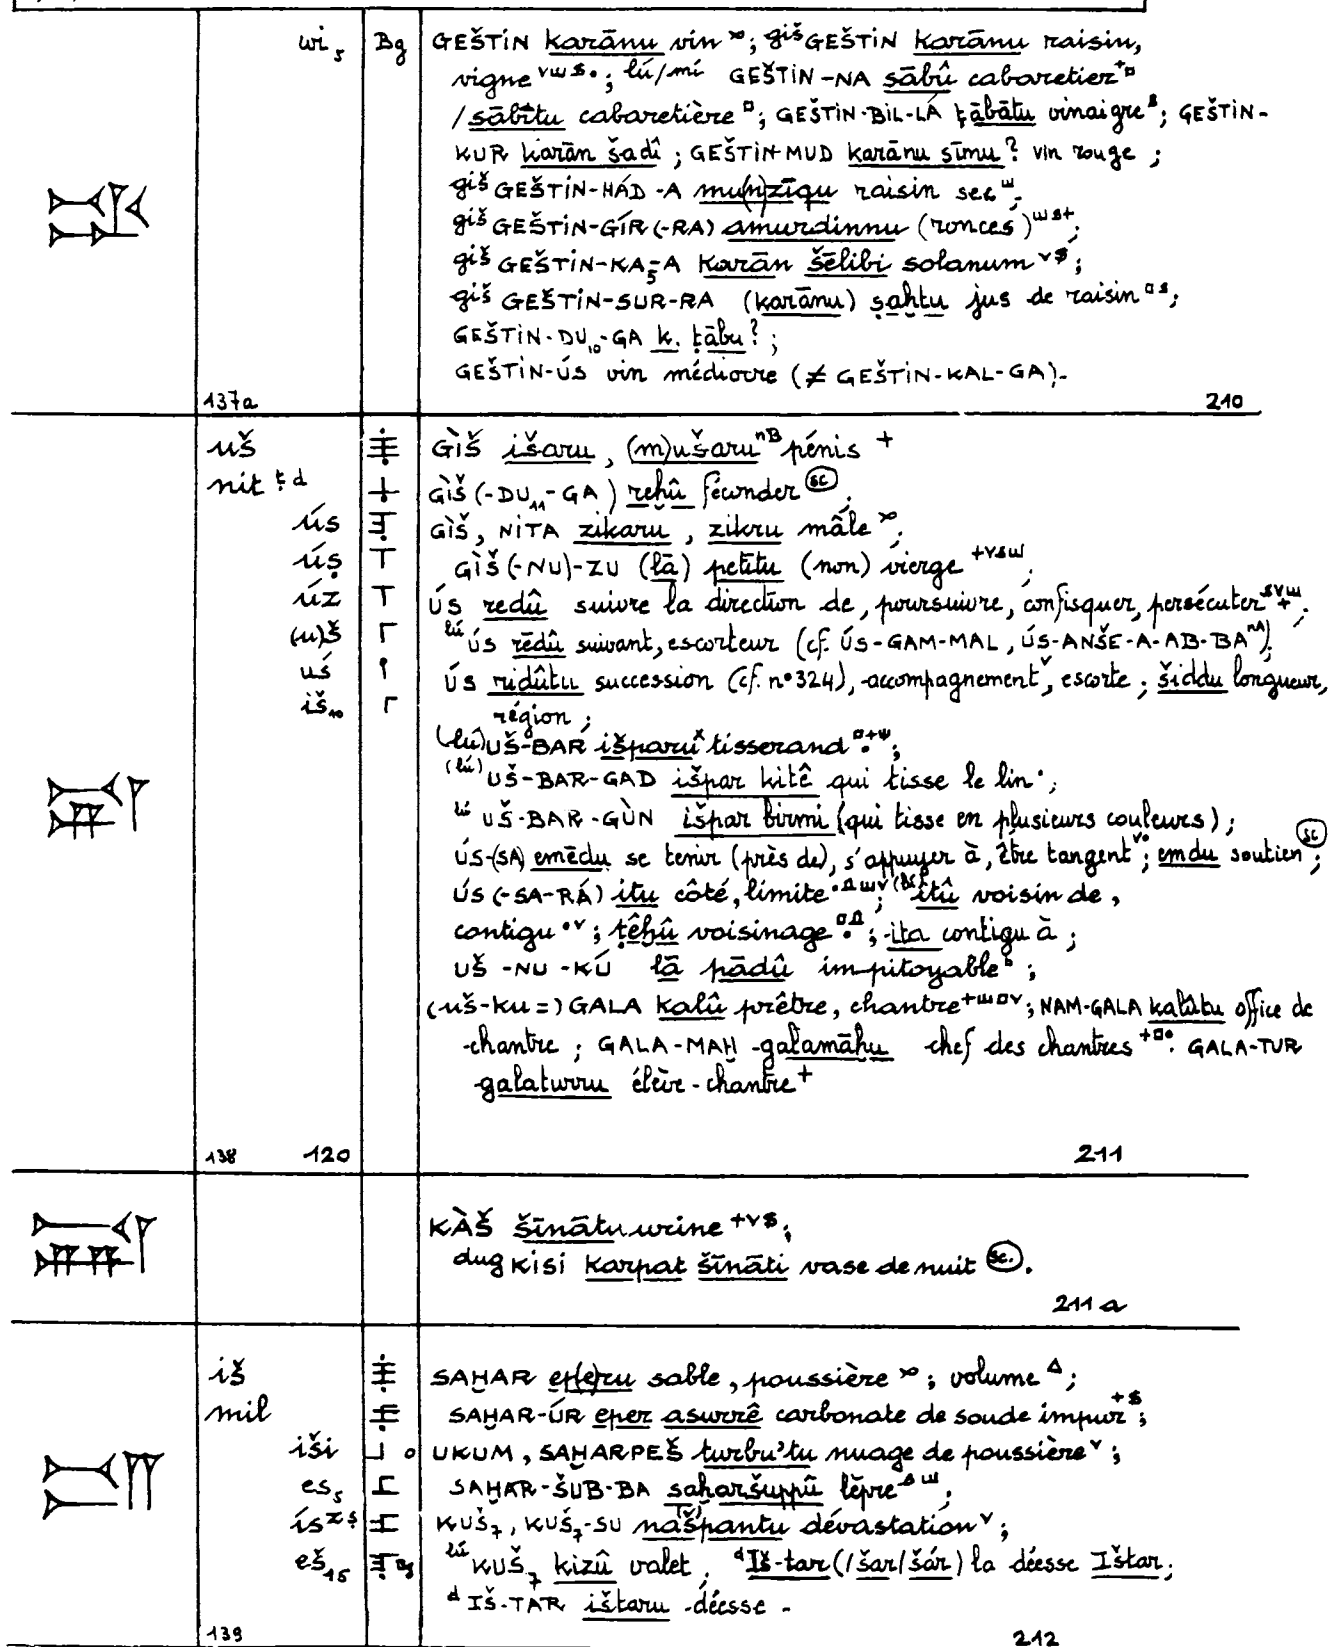 wi₅ Bg GEŠTIN karānu vin ; giš GEŠTIN karānu raisin,
vigne ; lú/mí GEŠTIN-NA sābû cabaretier
/sābītu cabaretière ; GEŠTIN-BIL-LÁ ṭābātu vinaigre ; GEŠTIN-
KUR karān šadî ; GEŠTIN-MUD karānu sīmu? vin rouge ;
giš GEŠTIN-HÁD-A mu(n)zīqu raisin sec ;
giš GEŠTIN-GÍR (-RA) amurdinnu (ronces) ;
giš GEŠTIN-KA₅-A karān šēlibi solanum ;
giš GEŠTIN-SUR-RA (karānu) ṣaḫtu jus de raisin ;
GEŠTIN-DU₁₀-GA k. ṭābu? ;
GEŠTIN-ÚS vin médiocre (≠ GEŠTIN-KAL-GA).
137a 210
uš GÌŠ išaru, (m)ušaru nB pénis +
nit ṭ d GÌŠ (-DU₁₁-GA) reḫû féconder sc ;
ús GÌŠ, NITA zikaru, zikru mâle ;
úṣ GÌŠ (-NU)-ZU (lā) petītu (non) vierge ;
úz ÚS redû suivre la direction de, poursuivre, confisquer, persécuter ;
(u)š lú ÚS rēdû suivant, escorteur (cf. ÚS-GAM-MAL, ÚS-ANŠE-A-AB-BA nA) ;
uś ÚS ridûtu succession (cf. n°324), accompagnement v, escorte ; šiddu longueur,
iš₁₀ région ;
(lú) UŠ-BAR išparu tisserand ;
(lú) UŠ-BAR-GAD išpar kitê qui tisse le lin ;
lú UŠ-BAR-GÙN išpar birmi (qui tisse en plusieurs couleurs) ;
ÚS-(SA) emēdu se tenir (près de), s'appuyer à, être tangent ; emdu soutien sc ;
ÚS (-SA-RÁ) itu côté, limite ; itû voisin de,
contigu ; ṭêḫû voisinage ; ita contigu à ;
UŠ-NU-KÚ lā pādû impitoyable ;
(uš-ku =) GALA kalû prêtre, chantre ; NAM-GALA kalûtu office de
chantre ; GALA-MAḪ galamāḫu chef des chantres . GALA-TUR
galaturru élève-chantre +
138 120 211
KÀŠ šīnātu urine + v ;
dug KISI karpat šīnāti vase de nuit sc.
211 a
iš SAḪAR ep(e)ru sable, poussière ; volume Δ ;
mil SAḪAR-ÚR eper asurrê carbonate de soude impur ;
iši UKUM, SAḪARPEŠ turbu'tu nuage de poussière v ;
es₅ SAḪAR-ŠUB-BA saḫaršuppû lèpre ;
ís z ṣ KUŠ₇, KUŠ₇-SU našpantu dévastation v ;
eš₁₅ lú KUŠ₇ kizû valet ; d Iš-tar (/šar/šár) la déesse Ištar ;
d IŠ-TAR ištaru déesse -
139 212